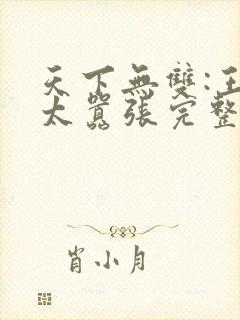 天下無雙:王
太囂張完整
肖小月